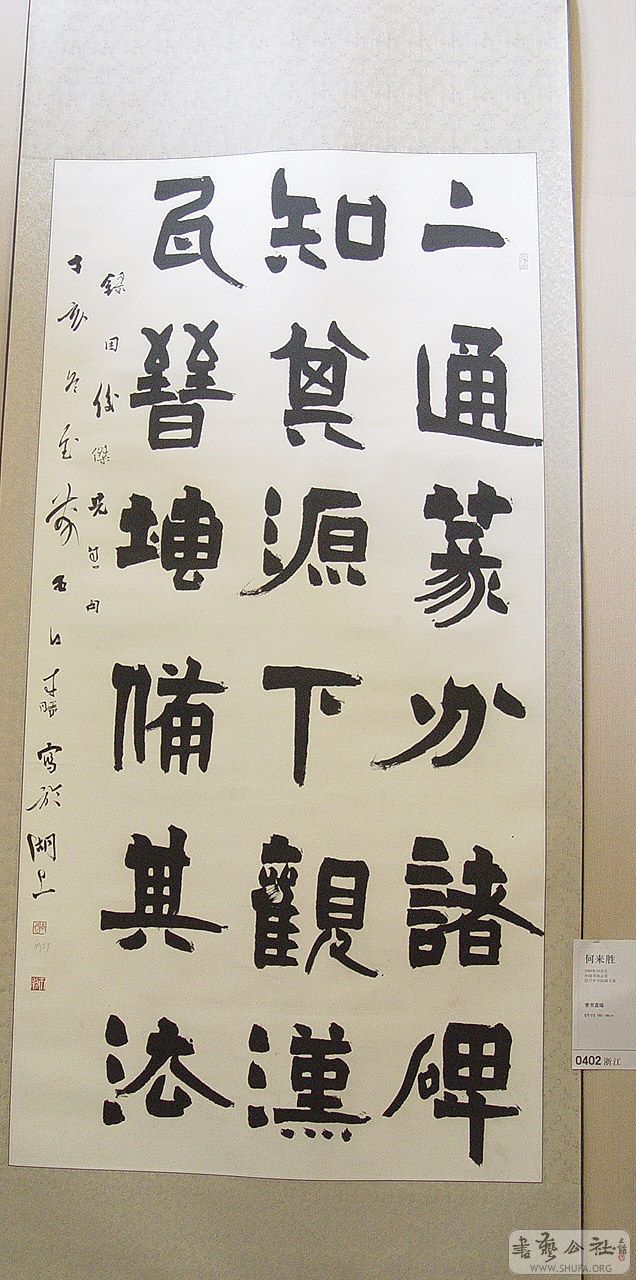 上通篆分諸碑
知其源下觀漢
瓦晉塼備其法
錄田俊傑兄句
丁亥冬至前五日来勝寫於湖上
何来胜
0402 浙江
書藝公社
WWW.SHUFA.ORG